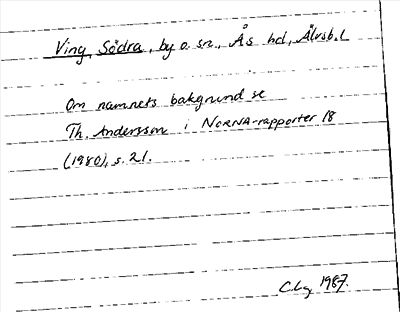 Ving, Södra, by o. sn., Ås hd, Älvsb. l
Om namnets bakgrund se
Th. Andersson i NORNA-rapporter 18
(1980), s. 21.
1987.